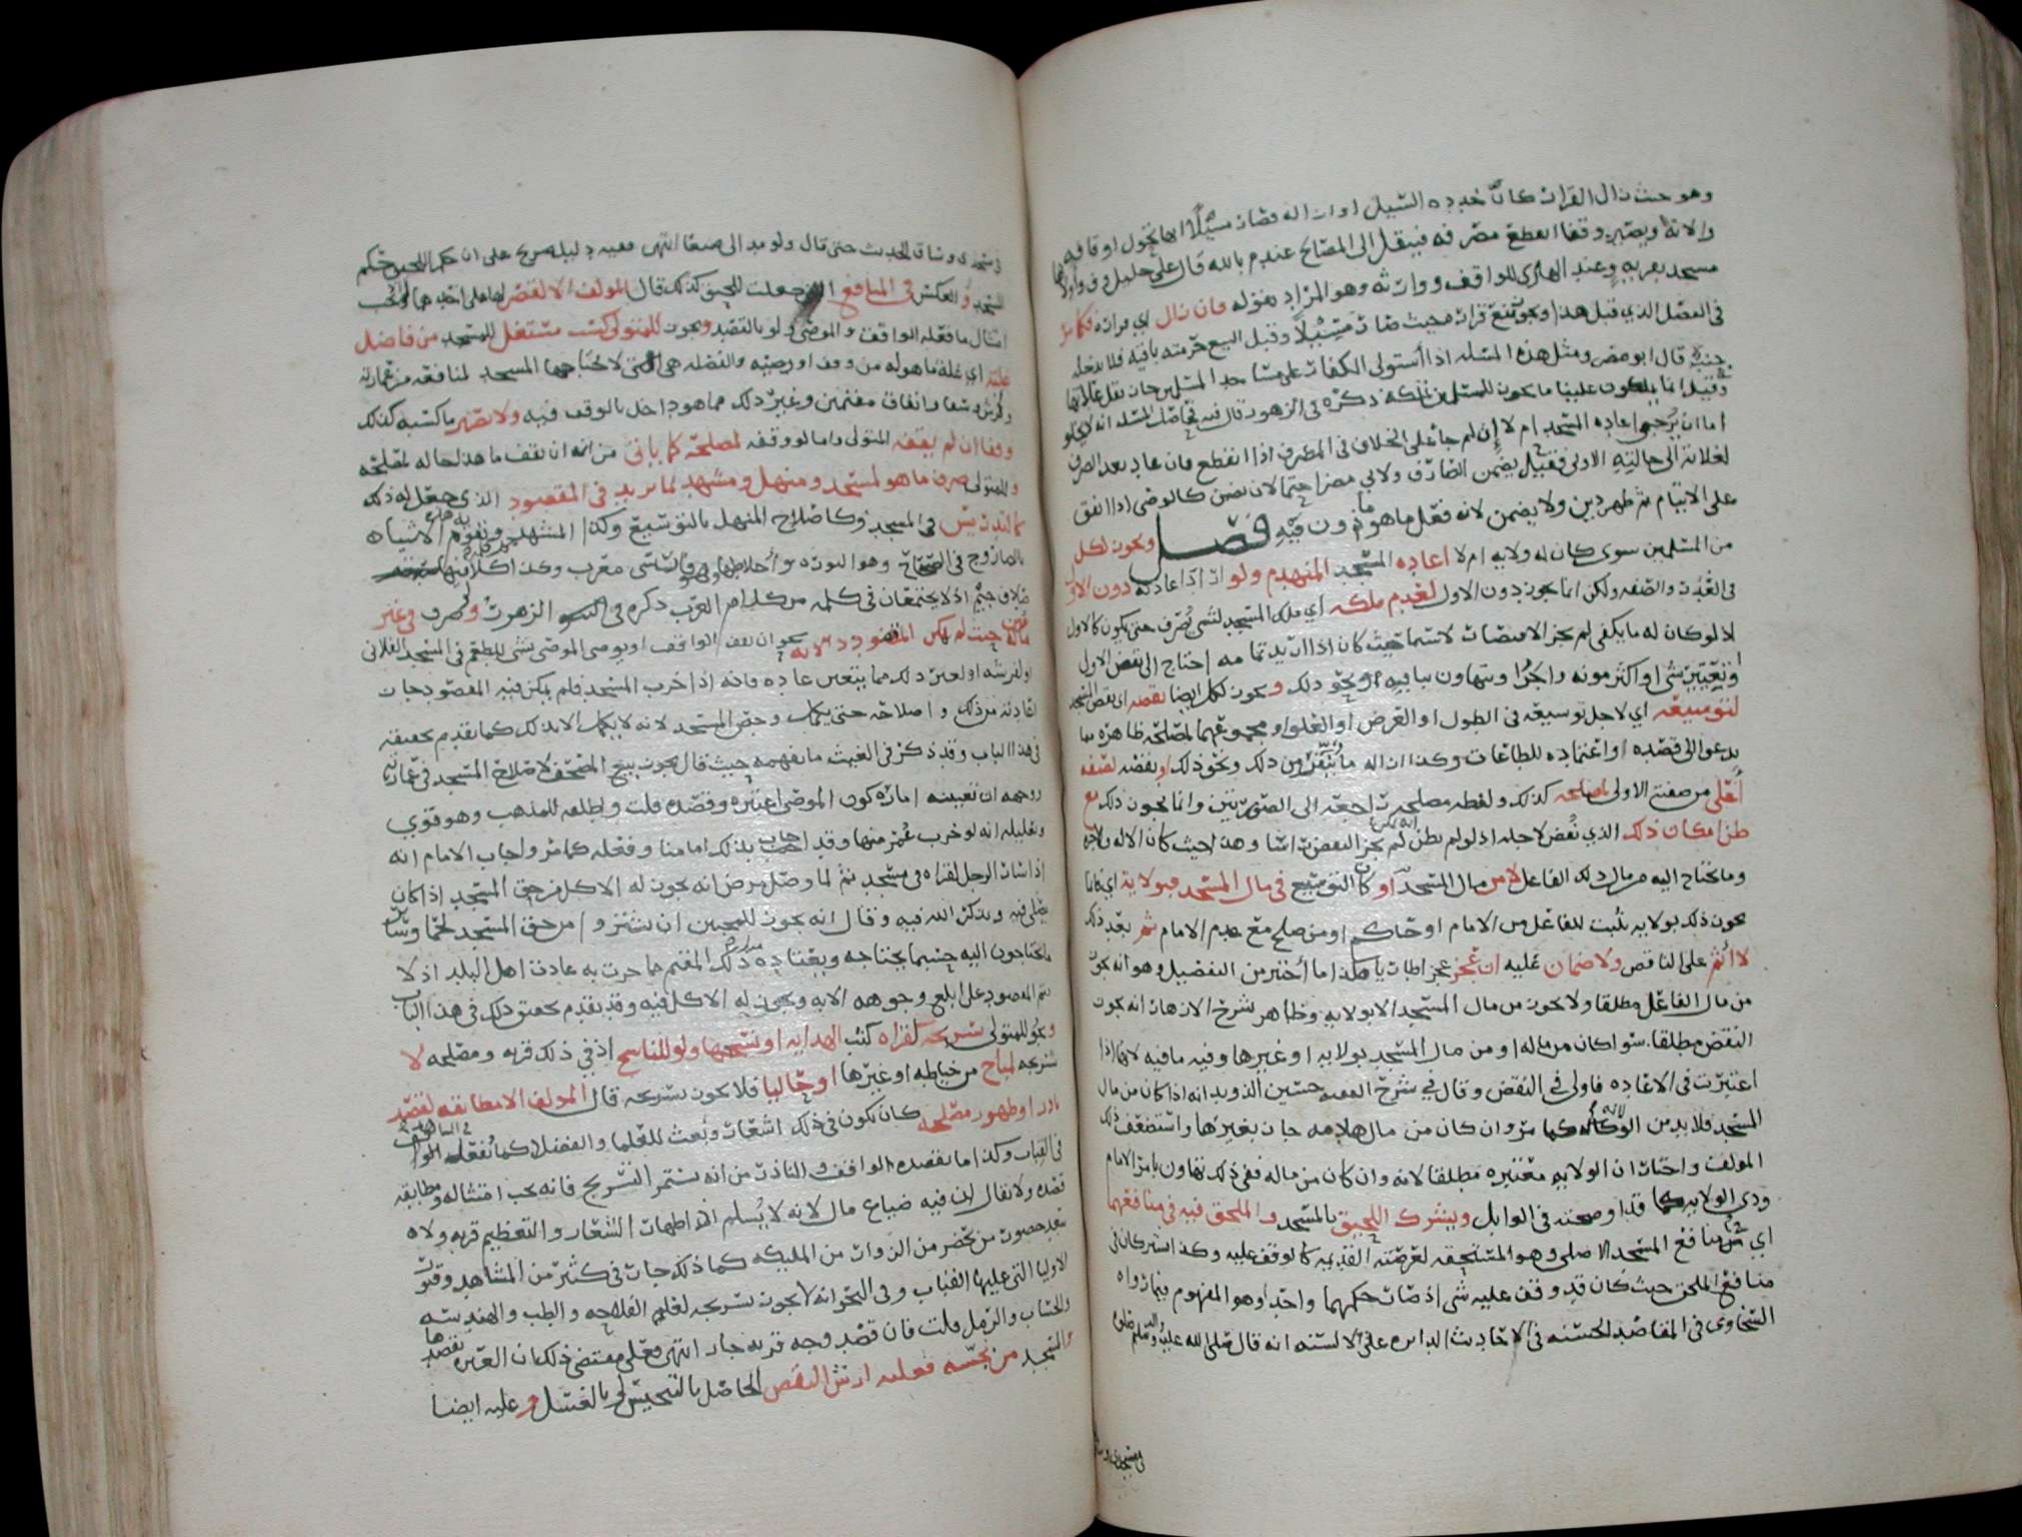 وهو حيث زال القرار كان خدده السيل او ازاله فصار مسيلا
والآته ويصير وقفا انقطع مصرفه فينقل الى المصالح عندم بالله قال علي خليل
مسجد بقربه وعند الهادي للواقف ووارثه وهو المراد بقوله فان زال اي قراره فكما مر
في الفصل الذي قبل هذا قراره بحيث صار مسيلا وقيل البيع حرمته باقيه فلا يدخله
قال ابو مضر ومثل هذه المسئله اذا استولى الكفار على مساجد المسلمين جاز نقل
وقيل انما يملكون علينا ما يجوز للمسلمين تملكه ذكره في الزهور قال فيه
اما ان يرجى اعاده المسجد ام لا إن لم جا على الخلاف في المصرف اذا انقطع فان عاد بعد الصرف
لغلاته الى حالته الاولى فقيل يضمن الصارف ولابي مضر احتمالان يضمن كالوصي اذا انفق
على الايتام ثم ظهر دين ولا يضمن لانه فعل ما هو ماذون فيه فصل ويجوز لكل
من المسلمين سوى كان له ولايه ام لا اعاده المسجد المنهدم ولو اراد اعادته دون الاول
في القدر والصفه ولكن انما يجوز دون الاول لعدم ملكه اي ملك المسجد لشي يصرف حتى يكون كالاول
اذ لو كان له ما يكفي لم يجز الاقتصار لا سيما حيث كان اذا اريد تمامه احتاج الى نقض الاول
شي او اكثر مونه واجرا ويتهاون بباقيه او نحو ذلك ويجوز لكل ايضا نقضه اي نقض المسجد
لتوسيعه اي لاجل توسيعه في الطول او العرض او العلو او مجموعهما لمصلحه ظاهره مما
يدعو الى قصده او اعتماده للطاعات وكذا ازاله ما ينفر من ذلك ونحو ذلك او نقضه لصفه
أعلى من صفته الاولى كذلك ولفظه مصلحه راجعه الى الصورتين وانما يجوز ذلك مع
ظن امكان ذلك الذي نقض لاجله اذ لو لم يظن لم يجز النقض راسا وهذا حيث كان الاله
وما يحتاج اليه من مال ذلك الفاعل لا من مال المسجد او كان التوسيع في مال المسجد فبولاية اي فانما
يجوز ذلك بولايه تثبت للفاعل من الامام او حاكم او من صلح مع عدم الامام ثم بعد ذلك
لا اثم على الناقص ولا ضمان عليه ان عجز هكذا ما اختير من التفصيل وهو انه يجوز
من مال الفاعل مطلقا ولا يجوز من مال المسجد الا بولايه وظاهر شرح الازهار انه يجوز
النقض مطلقا سوا كان من ماله او من مال المسجد بولايه او غيرها وفيه ما فيه لانها اذا
اعتبرت في الاعاده فاولى في النقض وقال في شرح الفقيه حسين الذويد انه اذا كان من مال
المسجد فلا بد من الولايه كما مر وان كان من مال هادمه جاز بغيرها واستضعف ذلك
المولف واختار ان الولايه معتبره مطلقا لانه وان كان من ماله ففي ذلك تهاون بامر الامام
وذي الولايه كما قد اوضحته في الوابل ويشترك اللحيق بالمسجد والملحق فيه في منافعهما
اي منافع المسجد الاصلي وهو المستحقه لعرصته القديمه كالوقف عليه وكذا اشتركا في
منافع الملحق حيث كان قد وقف عليه شي اذ صار حكمهما واحدا وهو المفهوم بما رواه
السخاوي في المقاصد الحسنه في الاحاديث الدايره على الالسنه انه قال صلى الله عليه وآله وسلم
في مسجدي وساق الحديث حتى قال ولو مد الى صنعا انتهى ففيه دليل صريح على ان حكم اللحيق حكم
المسجد والعكس في المنافع التي جعلت للحيق كذلك قال المولف الا لقصر
امتثال ما فعله الواقف والموصي ولو بالقصد ويجوز للمتولي كسب مستغل للمسجد من فاضل
غلته اي غلة ما هو له من وقف او وصيه والفضله هي التي لا يحتاجها المسجد لمنافعه من عماره
وفرش وشعار وانفاق مقيمين وغير ذلك مما هو داخل بالوقف فيه ولا تصير ما كسبه كذلك
وقفا ان لم يقفه المتولي واما لو وقفه لمصلحه كما ياتي من انه ان يقف ما هذا حاله لمصلحه
وللمتولي صرف ما هو لمسجد ومنهل ومشهد فيما يزيد في المقصود الذي جعل له ذلك
كالتدريس في المسجد وكاصلاح المنهل بالتوسيع وكذا المشهد
وهو النوره واخلاطها فارسي معرب
بخلاف جيم اذ لا يجتمعان في كلمه من كلام العرب ذكره في الزهور وصرف في غير
ما له حيث لم يكن المقصود نحو ان يقف الواقف او يوصي الموصي بشي للطعم في المسجد الفلاني
او لفرشه او لغير ذلك مما يتعين عاده فانه اذا خرب المسجد فلم يمكن فيه المقصود جاز
اعادته من ذلك واصلاحه حتى يكمل وحص المسجد لانه لا يكمل الا بذلك كما تقدم تحقيقه
في هذا الباب وقد ذكر في الغيث ما يفهمه حيث قال يجوز بيع المصحف لاصلاح المسجد في عمارته
ووجهه ان تعيينه اماره كون الموصي اعتبره وقصده قلت واطلقه للمذهب وهو قوي
وتعليله انه لو خرب عمر منها وقد اجاب بذلك امامنا وفعله كما مر واجاب الامام انه
اذا سار الرجل لقراه في مسجد ثم لما وصل مرض انه يجوز له الاكل من حق المسجد اذا كان
يصلي فيه ويذكر الله فيه وقال انه يجوز للمحيين ان يشتروا من حق المسجد لحما وساير
ما يحتاجون اليه حسبما يحتاجه ويعتاده ذلك المقيم مما جرت به عادت اهل البلد اذ لا
يتم المقصود على ابلغ وجوهه الا به ويجوز له الاكل فيه وقد تقدم تحقيق ذلك في هذا الباب
ويجوز للمتولي تسريجه لقراه كتب الهدايه او نسخها ولو للناسخ اذ في ذلك قربه ومصلحه لا
تسرجه لمباح من خياطه او غيرها او خاليا فلا يجوز تسريجه قال المولف الا مطابقه لقصد
نادر او ظهور مصلحه كان يكون في ذلك اشعار وبعث للعلما والفضلا كما نفعله
في القباب وكذا ما يقصده الواقف والناذر من انه يستمر التسريج فانه يجب امتثاله ومطابقه
قصده ولا يقال ان فيه ضياع مال لانه لا يسلم اذ اظهار الشعار والتعظيم قربه ولانه
يقصد حضور من يحضر من الزوار من المليكه كما ذلك جار في كثير من المشاهد وقبور
الاوليا التي عليها القباب وفي البحر انه لا يجوز تسريجه لعلم الفلاحه والطب والهندسه
والحساب والرمل قلت فان قصد وجه قربه جاز انتهى فعلى مقتضى ذلك ان
والمسجد من نجسه فعليه ارش النقص الحاصل بالتنجيس او بالغسل وعليه ايضا